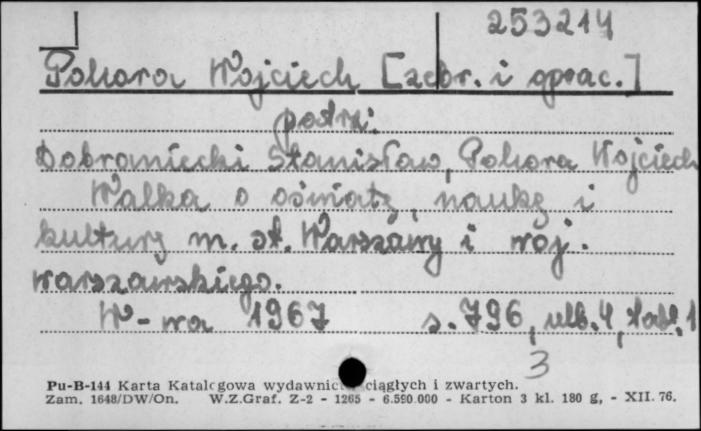 253214
Pokora Wojciech [zebr. i oprac.]
patrz:
Dobraniecki Stanisław, Pokora Wojciech
Walka o oświatę, naukę i
kulturę m. st. Warszawy i woj.
warszawskiego.
W-wa 1967 s. 796, nlb. 4, tabl. 1
3
Pu-B-144 Karta Katalogowa wydawnictw ciągłych i zwartych.
Zam. 1648/DW/On. W.Z.Graf. Z-2 - 1265 - 6.590.000 - Karton 3 kl. 180 g, - XII. 76.